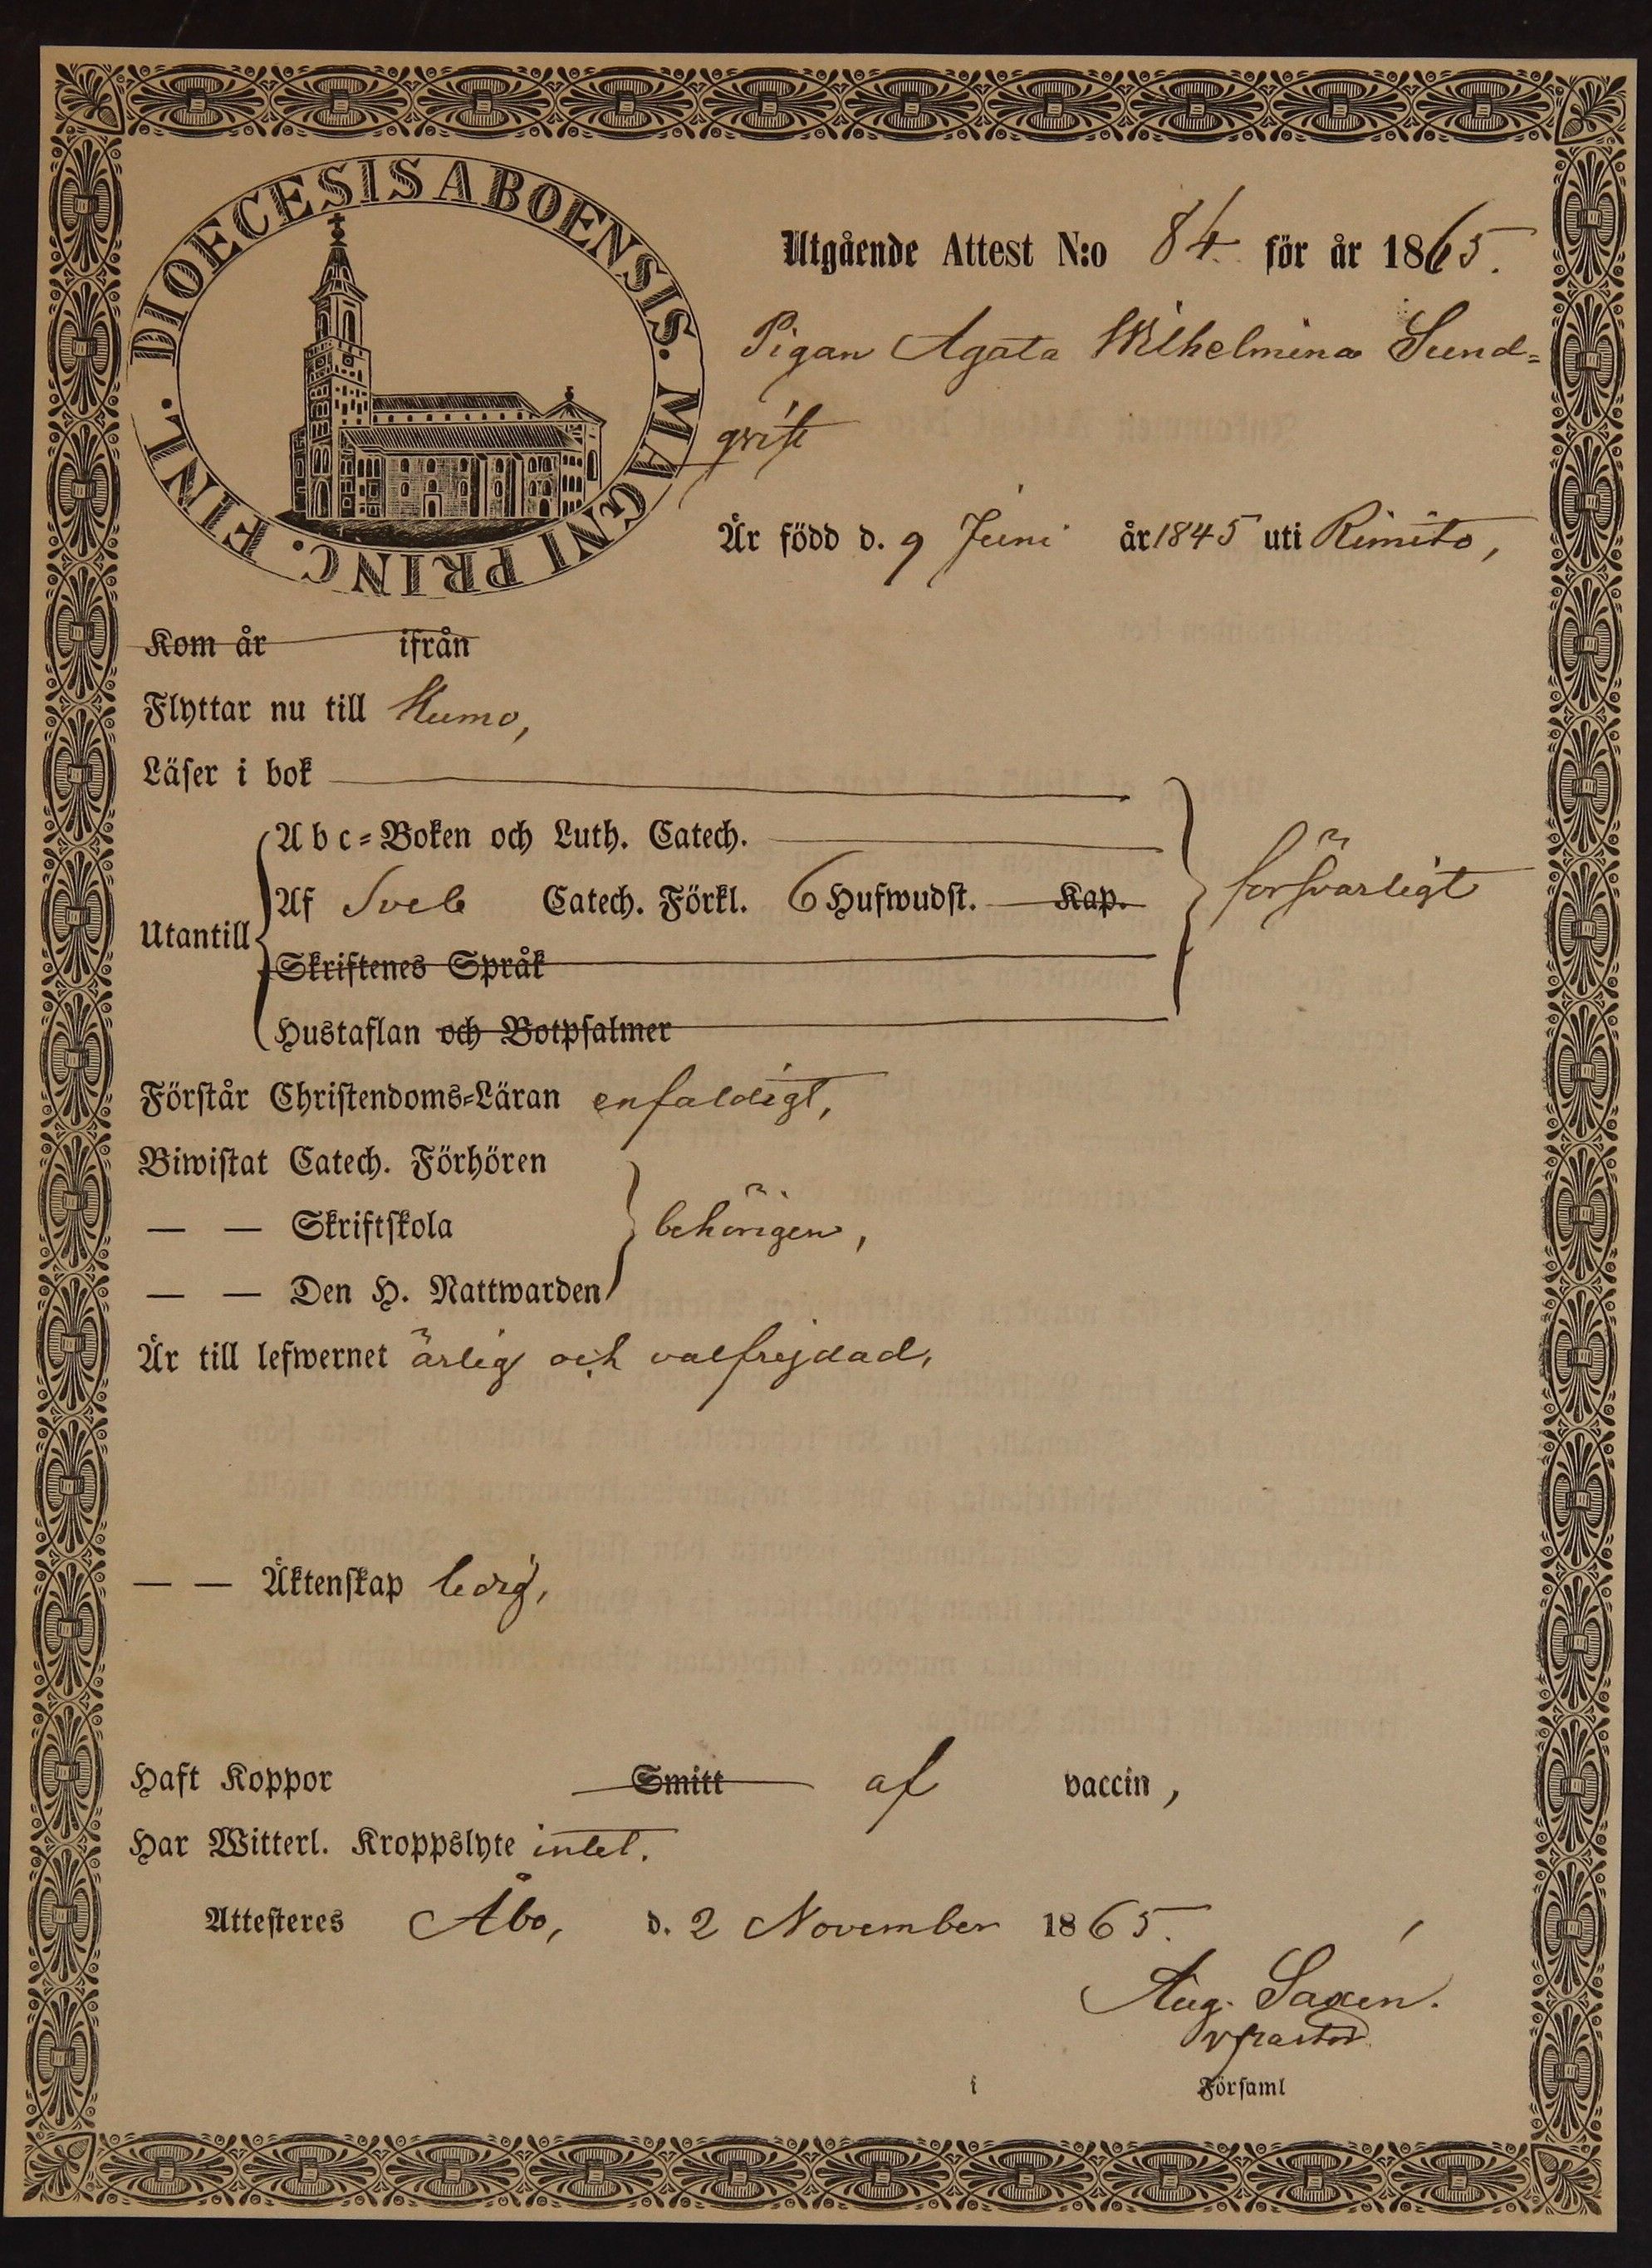 DIOECESIS ABOENSIS. MAGNI PRINC. FINL.
Utgående Attest N:o 84 för år 1865.
Pigan Agata Wilhelmina Sund=
qvist
Är född d. 9 Juni år 1845 uti Rimito,
Kom år ifrån
Flyttar nu till Kumo,
Läser i bok
Abc=Boken och Luth. Catech.
Af Sveb Catech. Förkl. 6 Hufwudst. Kap.
försvarligt
Utantill
Skriftenes Språk
Hustaflan och Botpsalmer
Förstår Christendoms=Läran enfaldigt,
Biwistat Catech. Förhören
— — Skriftskola
behörigen,
— — Den H. Nattwarden
Är till lefwernet ärlig och välfrejdad,
— — Äktenskap ledig,
Haft Koppor Smitt af vaccin,
Har Witterl. Kroppslyte intet.
Attesteres Åbo, d. 2 November 1865.
Aug. Saxén.
v pastor
i Församl